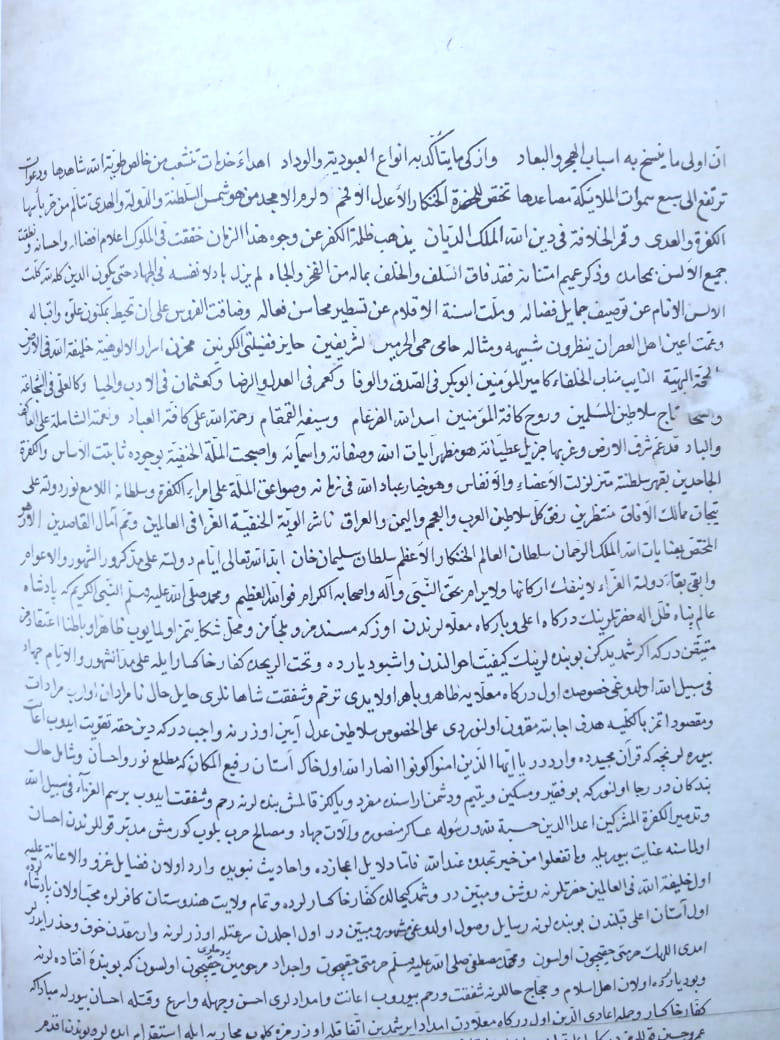 انّ اولى ما ينسخ به اسباب الهجر والبعاد وازكى ما يتأكّد به انواع العبوديّة والوداد اهداء خدمات تنشعب من خالص طويّة الله شاهدها ودعوات
ترتفع الى سبع سموات الملائكة مصاعدها تخصّ للحضرة الخنكار الأعدل الافخم الامجد من هو شمس السّلطنة والدّولة والهدى تتألّم من حرّ بأسها
الكفرة والعدى وقمر الخلافة فى دين الله الملك الديّان يذهب ظلمة الكفر عن وجوه هذا الزمان خفقت فى الملوك اعلام افضاله واحسانه
جميع الألسن بمحامده وذكر عميم امتنانه فقد فاق السّلف والخلف بماله من الفخر والجاه لم يزل باذلا نفسه فى الجهاد حتى يكون الدين كلّه لله كلّت
الالسن الانام عن توصيف جمايل فضاله وملّت اسنة الاقلام عن تسطير محاسن فعاله وضاقت الطروس على ان تحيط بمكنون علوّه واقباله
وعمت اعين اهل العصر ان ينظرون شبيهه ومثاله حامى حمى الحرمين الشريفين حايز فضيلتى الكونين مخزن اسرار الالوهيّة خليفة الله فى الارض
النايب مناب الخلفاء كامير المؤمنين ابوبكر فى الصّدق والوفا وكعمر فى العدل والرضا وكعثمان فى الادب والحيا وكالعلى فى الشجاعة
والسخا تاج سلاطين المسلمين وروح كافة المؤمنين اسد الله الضرغام وسيفه القمقام رحمة الله على كافة العباد ونعمته الشاملة على العاكف
والباد قد عمّ شرف الارض وغربها جزيل عطيّاته هو مظهر آيات الله وصفاته واسمآئه واصبحت الملّة الحنفيّة بوجوده ثابتت الأساس والكفرة
الجاحدين بقهر سلطنته متزلزلت الأعضاء والأنفاس وهو خيار عباد الله فى زمانه وصواعق الملّة على امراء الكفرة وسلطانه اللامع نور دولته على
تيجان ممالك الآفاق منتظرين رفق كلّ سلاطين العرب والعجم واليمن والعراق ناشر الوية الحنفيّة الغرّا فى العالمين وتمّ آمال القاصدين
المختصّ بعنايات الله الملك الرحمان سلطان العالم الخنكار الأعظم سلطان سليمان خان ابدا الله تعالى ايّام دولته على مدّ كرور الشهور والاعوام
وابقى بقاء دولة الغرّاء لا ينفك اركانها ولا يرام بحقّ النّبىّ وآله واصحابه الكرام فو الله العظيم ومحمد صلى الله عليه وسلم النّبى الكريم كه پادشاه
عالم پناه ظلّ اله حضرتلرينك درگاه اعلى وبارگاه معلّالرندن اوزكه مسندمز وملجأمز ومحلّ شكايتمز اولمايوب ظاهرا وباطنا اعتقادمز
متيقّن در كه اكر شمديدكن بو بنده لرينك كيفيّت احوالندن واشبو دياردە وتحت الريحده كفّار خاكسار ايله على مدّ الشهور والايام جهاد
فى سبيل الله اولدوغى خصوصده اول درگاه معلّايه ظاهر وباهر اولايدى ترحّم وشفقت شاهانلرى حايل حال نامرادان اوارب مرادات
ومقصود اتمز بالكليه هدف اجابته مقرون اولنوردى على الخصوص سلاطين عدل آيين اوزرنه واجب در كه دين حقه تقويت ايدوب اعانت
بيوره لر نتجه كه قرآن مجيدده وارددر يا ايّها الذين امنوا كونوا انصار الله اول خاك آستان رفيع المكان كه مطلع نور واحسان وشامل حال
بندگان در رجا اولنور كه بو فقير ومسكين ويتيم ودشمن اراسنده مفرد ويالكز قالمش بنده لرنه رحم وشفقت ايدوب برسم الغزآء فى سبيل الله
وتدمير الكفرة المشركين اعدا الدين حسبة لله ورسوله عساكر منصوره وآلات جهاد ومصالح حرب بلوب كورمش مدبّر قوللرندن احسان
اولماسنه عنايت بيوريله وما تفعلوا من خير تجدوه عند الله فامّا دلايل اعجازده واحاديث نبويده وارد اولان فضايل غزو والاعانة عليه
اول خليفة الله فى العالمين حضرتلرنه روشن ومبين در وشمديكيحالده كفّار خاكسار لرده وتمام ولايت هندوستان كافرلره محبّ اولان پادشاه
اول آستان اعلى قبلندن بو بنده لرنه رسايل وصول اولدوغى مشهور ومبين در اول اجلدن سرعتله اوزرلرنه وارمقدن خوف وحذر ايدرلر
امدى اللهك حرمتى حقيچون اولسون ومحمد مصطفى صلى الله عليه وسلّم حرمتى حقيچون واجداد مرحومين روحلرى حقيچون اولسون كه بو بندهٔ افتاده لرنه
وبو دياردە اولان اهل اسلام وحجاج حاللرنه شفقت ورحم بيوروب اعانت وامدادلرى احسن وجهله واسرع وقتله احسان بيورله مبادا كه
كفّار خاكسار وجمله اعادى الدّين اول درگاه معلّادن امداد ايرشمدين اتفاقله اوزرمزه كلوب محاربه ايله استقدام ايده لر وبوندن اقدم